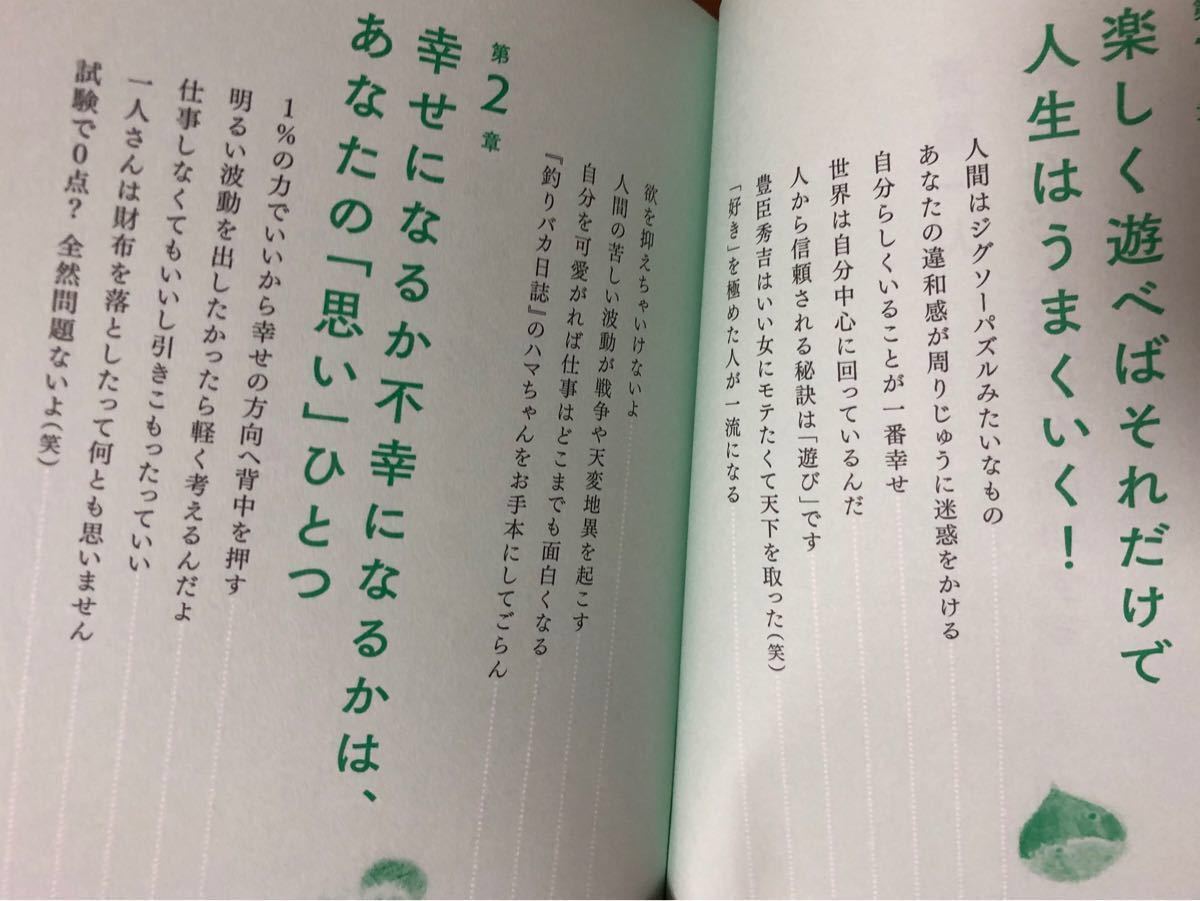 楽しく遊べばそれだけで
人生はうまくいく！
人間はジグソーパズルみたいなもの
あなたの違和感が周りじゅうに迷惑をかける
自分らしくいることが一番幸せ
世界は自分中心に回っているんだ
人から信頼される秘訣は「遊び」です
豊臣秀吉はいい女にモテたくて天下を取った（笑）
「好き」を極めた人が一流になる
欲を抑えちゃいけないよ
人間の苦しい波動が戦争や天変地異を起こす
自分を可愛がれば仕事はどこまでも面白くなる
『釣りバカ日誌』のハマちゃんをお手本にしてごらん
第2章
幸せになるか不幸になるかは、
あなたの「思い」ひとつ
1%の力でいいから幸せの方向へ背中を押す
明るい波動を出したかったら軽く考えるんだよ
仕事しなくてもいいし引きこもったっていい
一人さんは財布を落としたって何とも思いません
試験で0点？ 全然問題ないよ（笑）